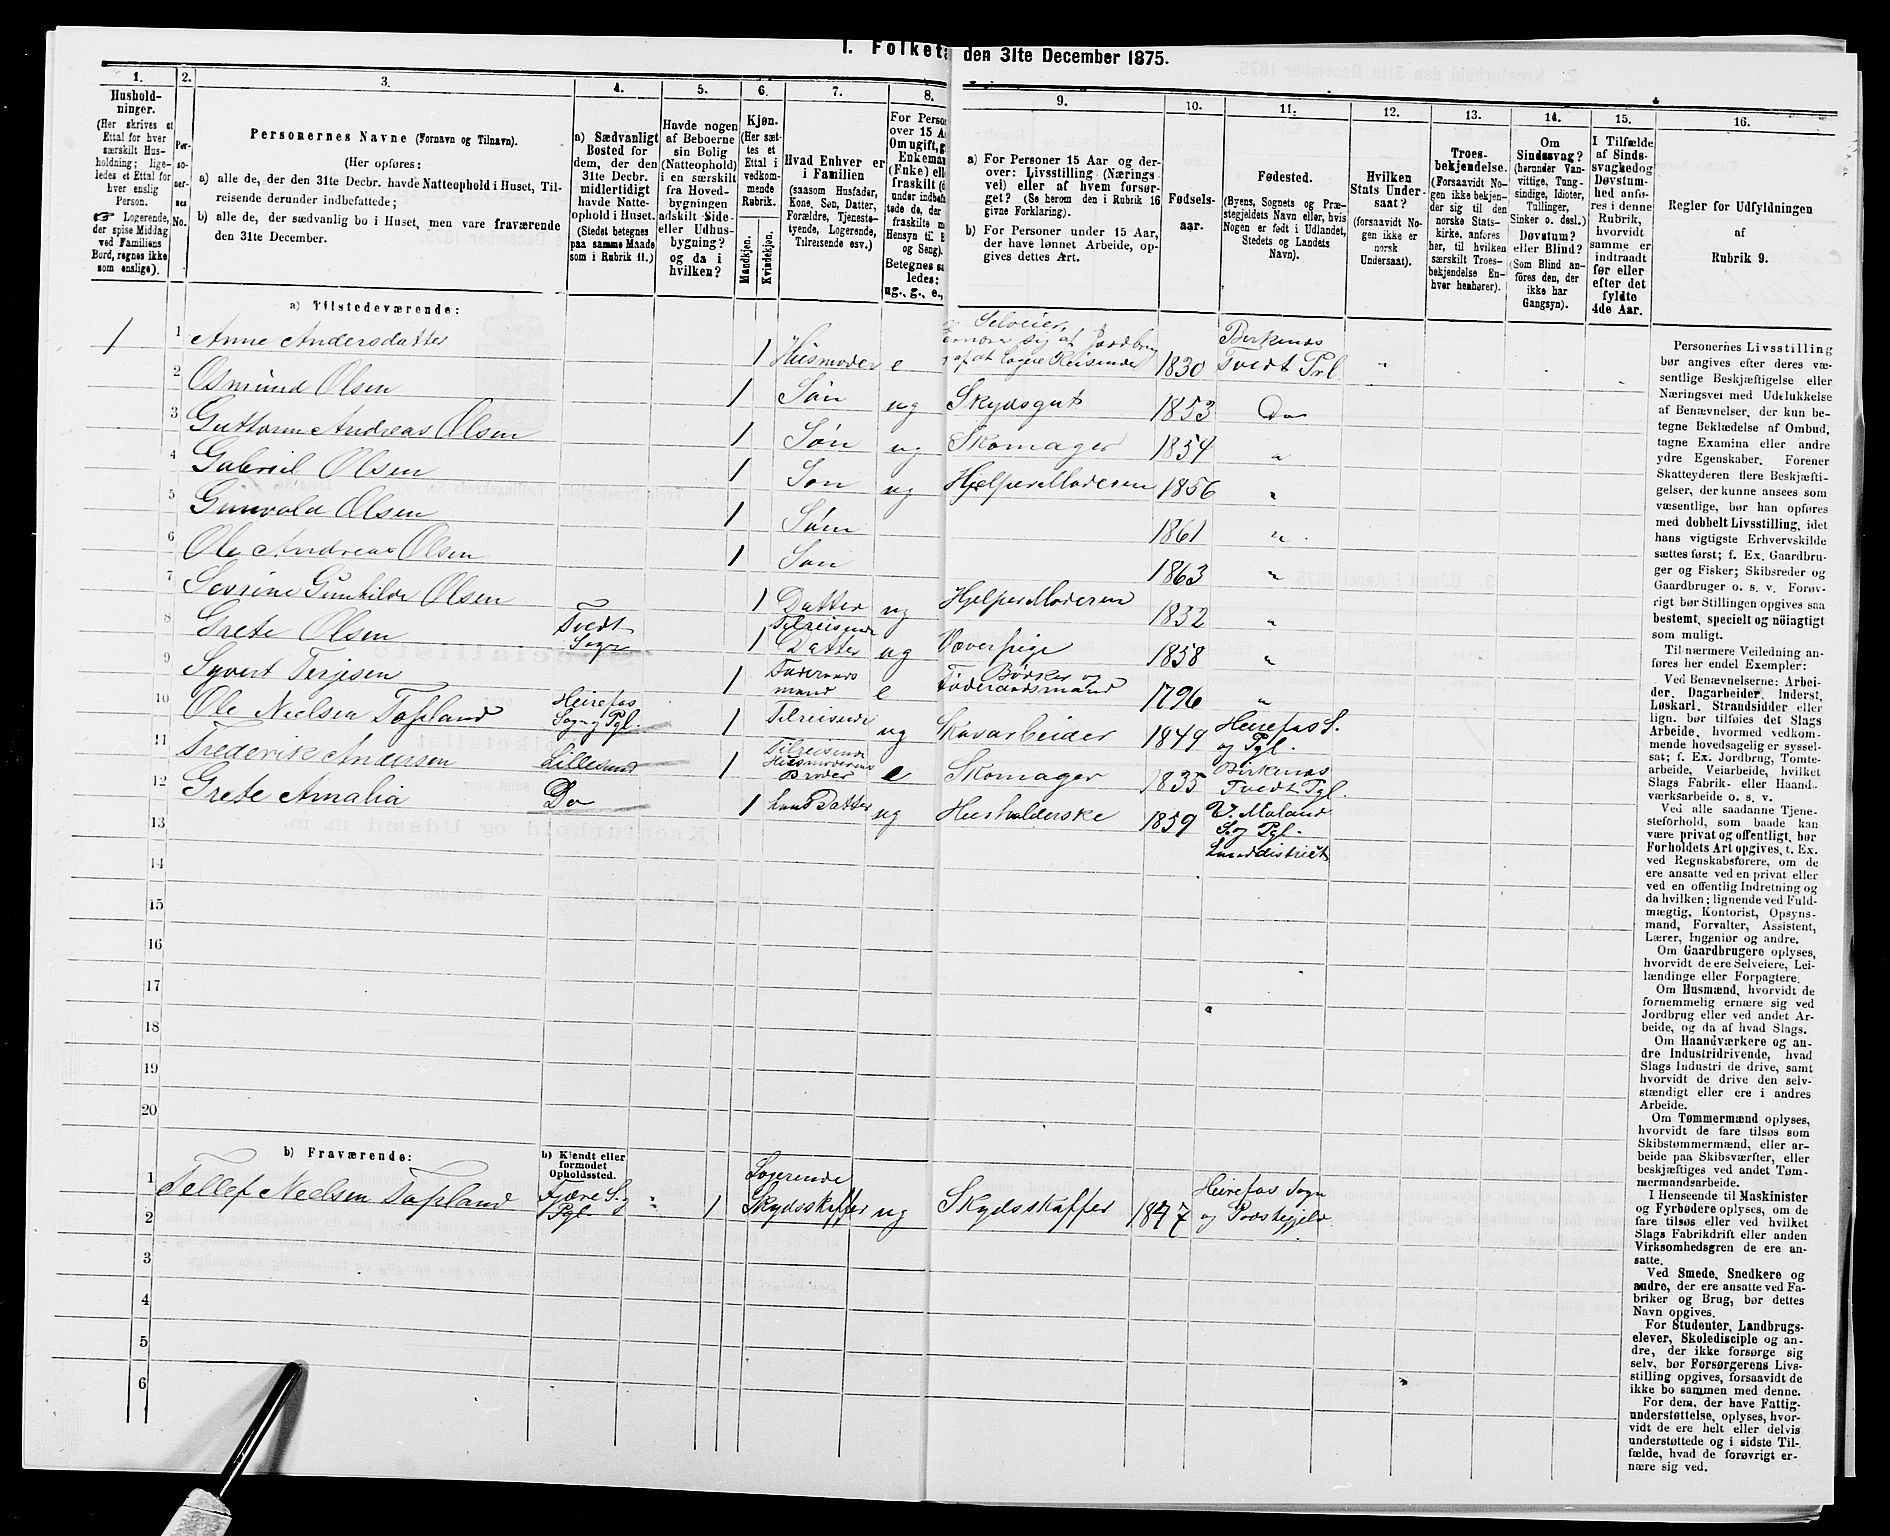 I. Folketæ
den 31te December 1875.
1.
Hushold-
ninger.
(Her skrives et
Ettal for hver
særskilt Hus-
holdning; lige-
ledes et Ettal for
hver enslig
Person.
☞ Logerende,
der spise Middag
ved Familiens
Bord, regnes ikke
som enslige).
2.
Per-
so-
ner-
nes
No.
3.
Personernes Navne (Fornavn og Tilnavn).
(Her opføres:
a) alle de, der den 31te Decbr. havde Natteophold i Huset, Til-
reisende derunder indbefattede;
b) alle de, der sædvanlig bo i Huset, men vare fraværende
den 31te December.
4.
a) Sædvanligt
Bosted for
dem, der den
31te Decbr.
midlertidigt
havde Natte-
ophold i Huset.
(Stedet betegnes
paa samme Maade
som i Rubrik 11.)
5.
Havde nogen
af Beboerne
sin Bolig
(Natteophold)
i en særskilt
fra Hoved-
bygningen
adskilt Side-
eller Udhus-
bygning?
og da i
hvilken?
6.
Kjøn.
(Her sæt-
tes et
Ettal i
vedkom-
mende
Rubrik.
Mandkjøn.
Kvindekjøn.
7.
Hvad Enhver er
i Familien
(saasom Husfader,
Kone, Søn, Datter,
Forældre, Tjeneste-
tyende, Logerende,
Tilreisende osv.)
8.
For Person
over 15 A
Om ugift, g
Enkema
(Enke) ell
fraskilt (
under indb
tede de, de
fraskilte m
Hensyn til
og Seng).
Betegnes s
ledes:
ug., g., e.,
9.
a) For Personer 15 Aar og der-
over: Livsstilling (Nærings-
vei) eller af hvem forsør-
get? (Se herom den i Rubrik 16
givne Forklaring).
b) For Personer under 15 Aar,
der have lønnet Arbeide, op-
gives dettes Art.
10.
Fødsels-
aar.
11.
Fødested.
(Byens, Sognets og Præ-
stegjeldets Navn eller, hvis
Nogen er født i Udlandet,
Stedets og Landets
Navn).
12.
Hvilken
Stats Under-
saat?
(forsaavidt No-
gen ikke er
norsk
Undersaat).
13.
Troes-
bekjendelse.
(Forsaavidt No-
gen ikke bekjen-
der sig til den
norske Stats-
kirke, anføres
her, til hvilken
særskilt Troes-
bekjendelse En-
hver henhører).
14.
Om
Sindssvag?
(herunder Van-
vittige, Tung-
sindige, Idioter,
Tullinger,
Sinker o. desl.)
Døvstum?
eller Blind?
(Som Blind an-
føres den, der
ikke har
Gangsyn).
15.
I Tilfælde
af Sinds-
svaghed og
Døvstum-
hed anfø-
res i denne
Rubrik,
hvorvidt
samme er
indtraadt
før eller
efter det
fyldte
4de Aar.
16.
Regler for Udfyldningen
af
Rubrik 9.
a) Tilstedeværende:
1 1 Anne Andersdatter 1 Husmoder e Selveier, ernærer sig af Jordbrug og af at logere Reisende 1830 Birkenæs Tvedt Prl. "
2 Osmund Olsen 1 Søn ug Skydsgut 1853 Do
3 Guttorm Andreas Olsen 1 Søn ug Skomager 1854 "
4 Gabriel Olsen 1 Søn ug Hjelper Moderen 1856 "
5 Gunvald Olsen 1 Søn 1861 "
6 Ole Andreas Olsen 1 Søn 1863 "
7 Serine Gunhilde Olsen 1 Datter ug Hjelper Moderen 1852 "
8 Grete Olsen Tvedt Sogn 1 Tilreisende Datter ug Væverpige 1858 "
9 Syvert Terjesen 1 Føderaads mand e Bødker og Føderaadsmand 1796 "
10 Ole Nielsen Topland Heirefos Sogn og Pgl. 1 Tilreisende ug Skovarbeider 1849 Heirefos S. og Pgl.
11 Frederik Andersen Lillesand 1 Tilreisende Husmoderens Broder e Skomager 1835 Birkenæs Tvedt Pgl.
12 Grete Amalia Do 1 hans Datter ug Husholderske 1859 V. Moland S. og Pgl. Landdistrict
13
14
15
16
17
18
19
20
b) Fraværende:
b) Kjendt eller
formodet
Opholdssted.
1 Tellef Nielsen Topland Fjære S. og Pgl. " 1 Logerende Skydsskaffer ug Skydsskaffer 1847 Heirefos Sogn og Præstegjeld
2
3
4
5
6
Personernes Livsstilling
bør angives efter deres væ-
sentlige Beskjæftigelse eller
Næringsvei med Udelukkelse
af Benævnelser, der kun be-
tegne Beklædelse af Ombud,
tagne Examina eller andre
ydre Egenskaber. Forener
Skatteyderen flere Beskjæfti-
gelser, der kunne ansees som
væsentlige, bør han opføres
med dobbelt Livsstilling, idet
hans vigtigste Erhvervskilde
sættes først; f. Ex. Gaardbru-
ger og Fisker; Skibsreder og
Gaardbruger o. s. v. Forøv-
rigt bør Stillingen opgives saa
bestemt, specielt og nöiagtigt
som muligt.
Til nærmere Veiledning an-
føres her endel Exempler:
Ved Benævnelserne: Arbei-
der, Dagarbeider, Inderst,
Løskarl, Strandsidder eller
lign. bør tilføies det Slags
Arbeide, hvormed vedkom-
mende hovedsagelig er syssel-
sat; f. Ex. Jordbrug, Tomte-
arbeide, Veiarbeide, hvilket
Slags Fabrik- eller Haand-
værksarbeide o. s. v.
Ved alle saadanne Tjene-
steforhold, som baade kan
være privat og offentligt, bør
Forholdets Art opgives, t. Ex.
ved Regnskabsførere, om de
ere ansatte ved en privat eller
ved en offentlig Indretning og
da hvilken; lignende ved Fuld-
mægtig, Kontorist, Opsyns-
mand, Forvalter, Assistent,
Lærer, Ingeniør og andre.
Om Gaardbrugere oplyses,
hvorvidt de ere Selveiere, Lei-
lændinge eller Forpagtere.
Om Husmænd, hvorvidt de
fornemmelig ernære sig ved
Jordbrug eller ved andet Ar-
beide, og da af hvad Slags.
Om Haandværkere og an-
dre Industridrivende, hvad
Slags Industri de drive, samt
hvorvidt de drive den selv-
stændigt eller ere i andres
Arbeide.
Om Tømmermænd oplyses,
hvorvidt de fare tilsøs som
Skibstømmermænd, eller ar-
beide paa Skibsværfter, eller
beskjæftiges ved andet Tøm-
mermandsarbeide.
I Henseende til Maskinister
og Fyrbødere oplyses, om de
fare tilsøs eller ved hvilket
Slags Fabrikdrift eller anden
Virksomhedsgren de ere an-
satte.
Ved Smede, Snedkere og
andre, der ere ansatte ved Fa-
briker og Brug, bør dettes
Navn opgives.
For Studenter, Landbrugs-
elever, Skoledisciple og an-
dre, der ikke forsørge sig
selv, bør Forsørgerens Livs-
stilling opgives, forsaavidt de
ikke bo sammen med denne.
For dem, der have Fattig-
understøttelse, oplyses, hvor-
vidt de ere helt eller delvis
understøttede og i sidste Til-
fælde, hvad de forøvrigt er-
nære sig ved.